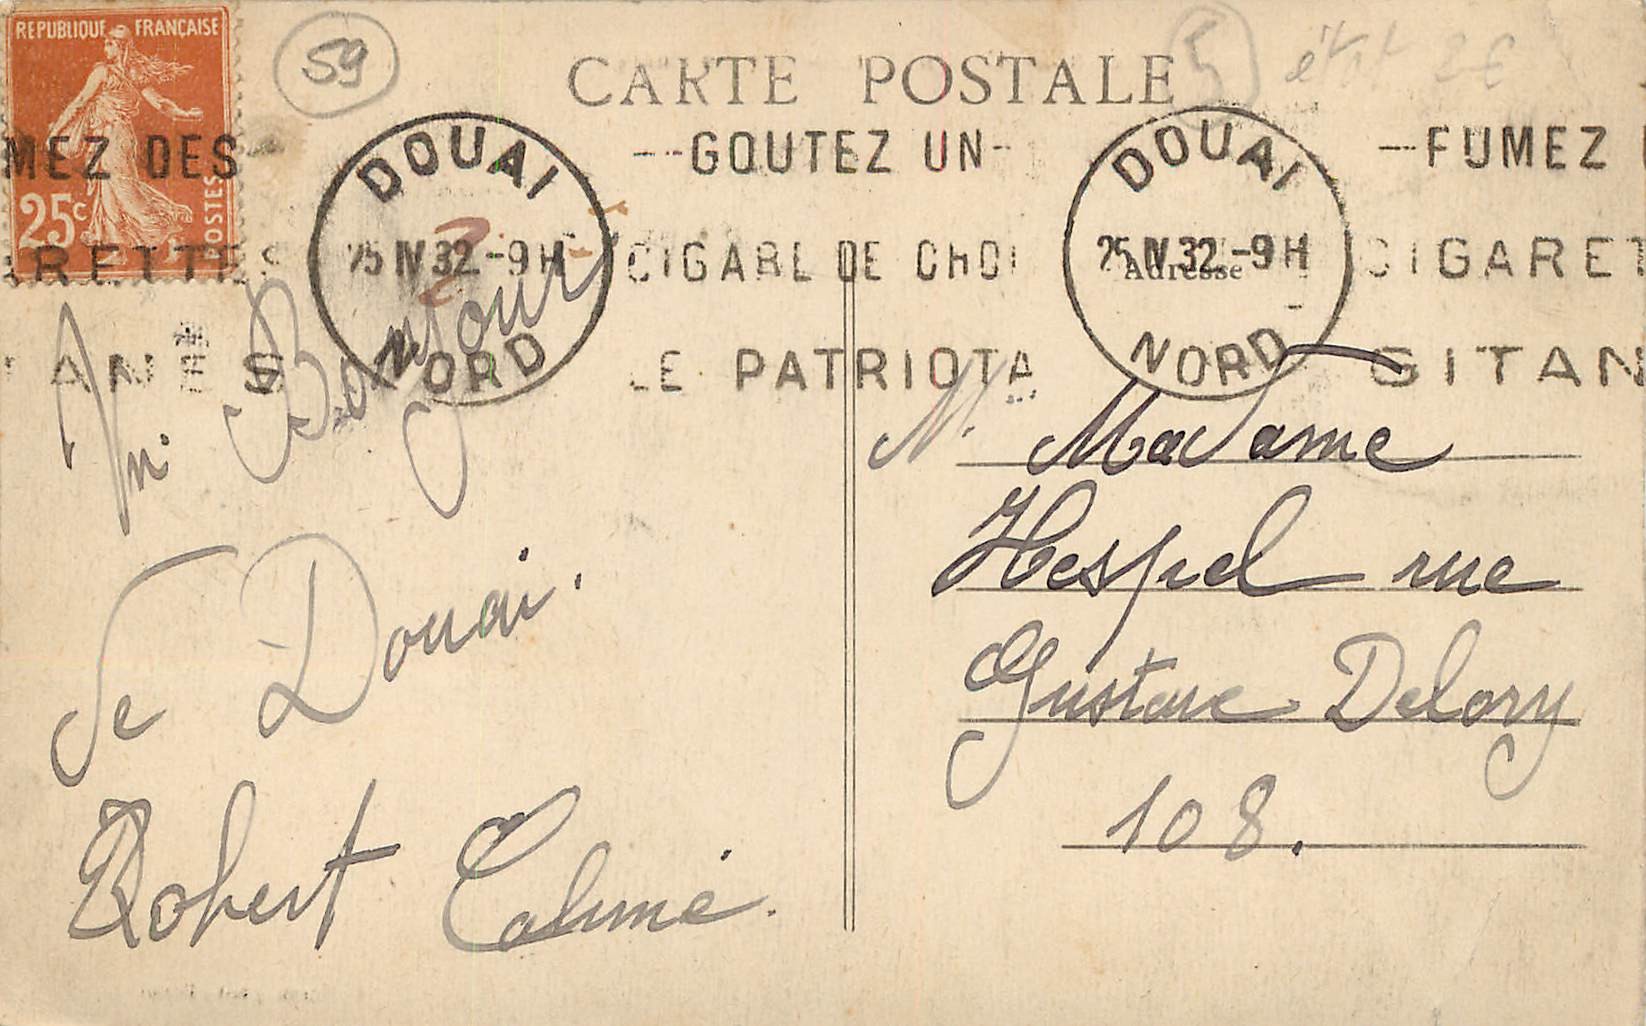 REPUBLIQUE FRANÇAISE
25c
POSTES
59
CARTE POSTALE
MEZ DES
DOUAI
--GOUTEZ UN-
DOUAI
--FUMEZ
RETTES
25 IV 32 -9H
CIGARE DE CHOI
25 IV 32 -9H
CIGARET
Adresse
TANES
NORD
LE PATRIOTA
NORD
GITAN
Un Bonjour
de Douai.
Robert
M.
Madame
Hespel rue
Gustave Delory
108.